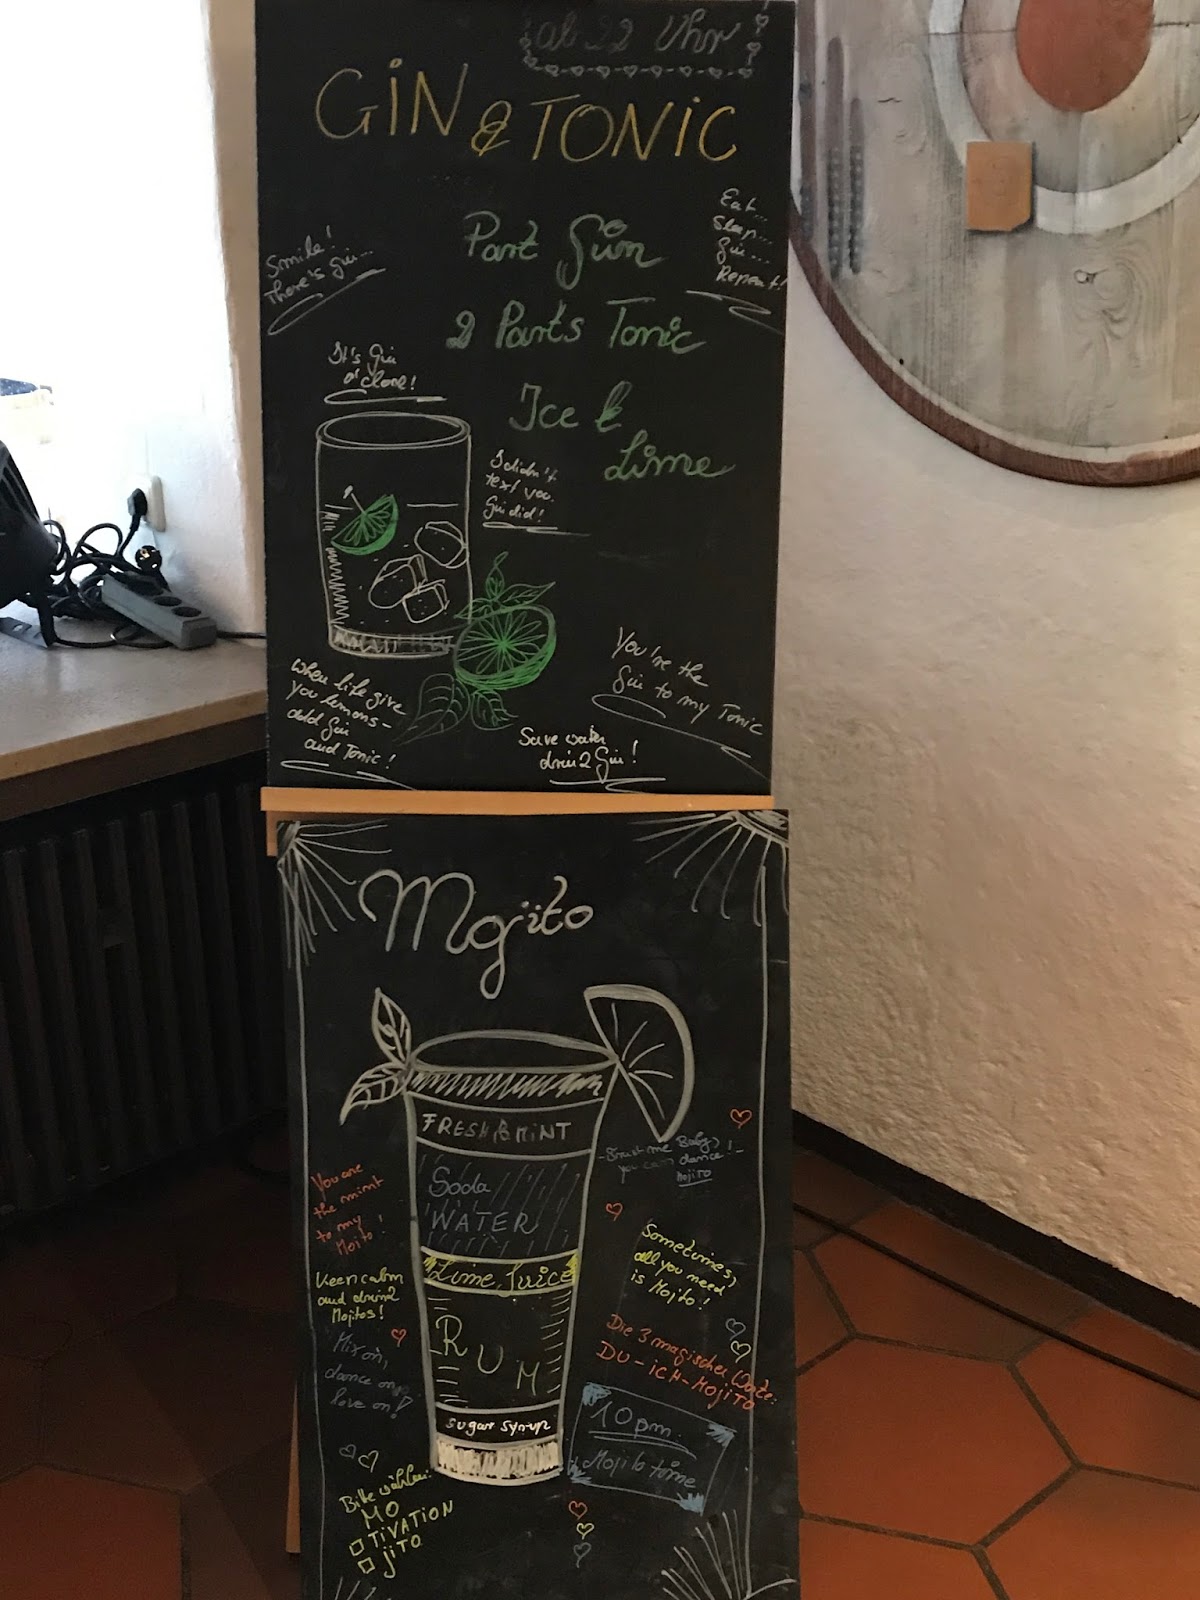 ab 22 Uhr
GiN & TONiC
Part Gin
2 Parts Tonic
Ice &
Lime
Smile!
There's gin...
Eat...
Sleep...
Gin...
Repeat!
It's Gin
o'clock!
I didn't
text you.
Gin did!
When life give
you lemons -
add Gin
and Tonic!
You're the
Gin to my Tonic
Save water
drink Gin!
Mojito
FRESH & MiNT
Soda
WATER
Lime Juice
RUM
Sugar Syrup
You are
the mint
to my
Moito!
Keep calm
and drink
Mojitos!
Mix on,
dance on,
love on!
Bitte wählen:
MO
TiVATiON
jiTO
- Trust me Baby,
you can dance! -
MojiTO
Sometimes,
all you need
is Mojito!
Die 3 magischen Worte:
DU-iCH-MojiTO
10pm.
Mojito time